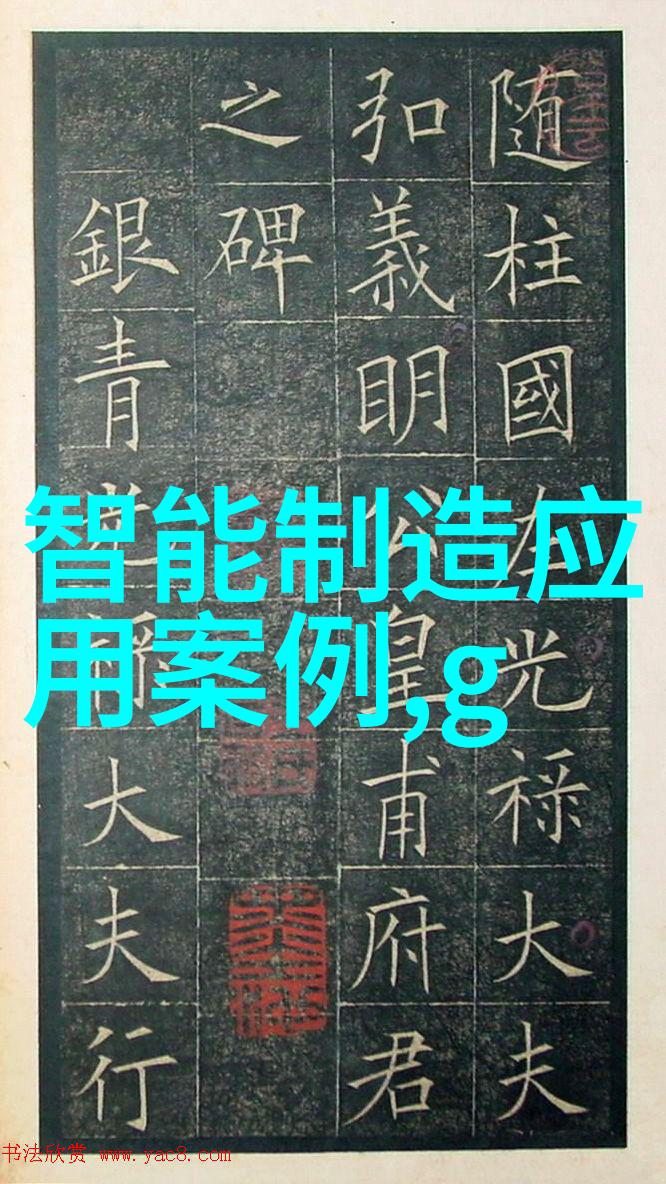 随柱國左光禄大夫
弘義眀公皇甫府君
之碑
銀青大夫行
智能制造应
用案例,g
书法欣赏 www.yac8.com